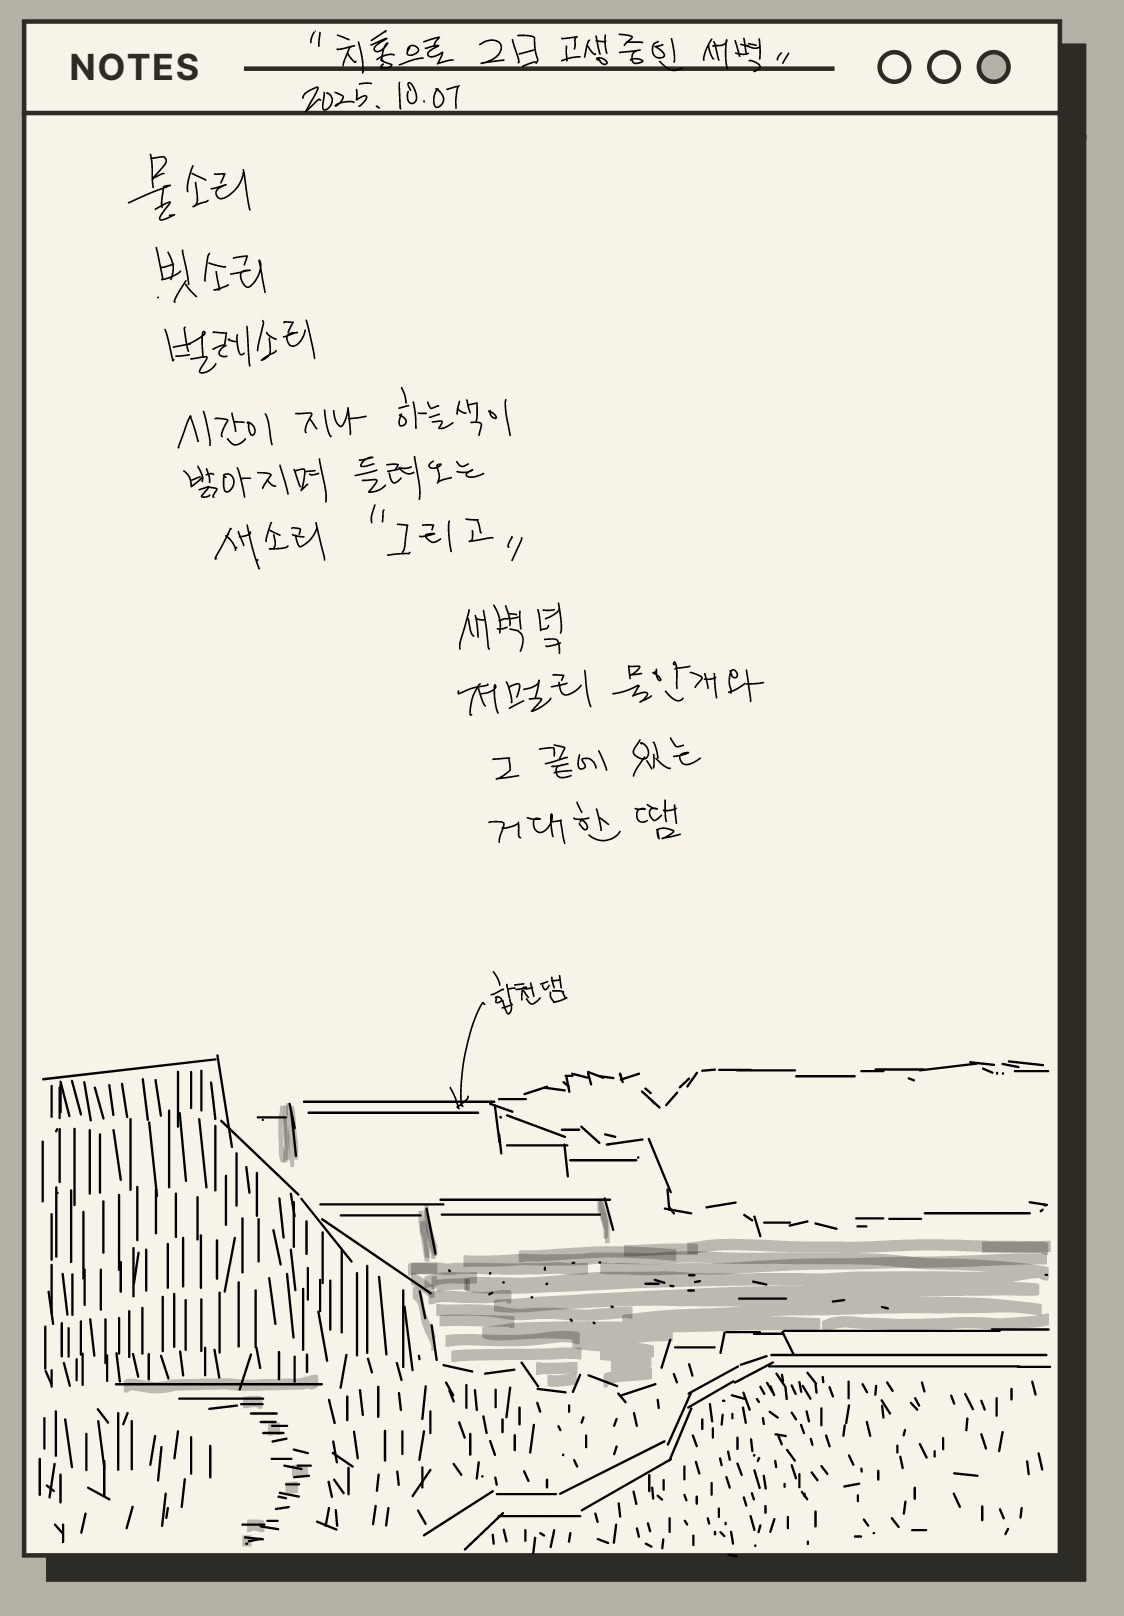 NOTES
"치통으로 2일 고생중인 새벽"
2025. 10. 07
물소리
빗소리
벌레소리
시간이 지나 하늘색이
밝아지며 들려오는
새소리 "그리고"
새벽녘
저멀리 물안개와
그 끝에 있는
거대한 땜
합천댐